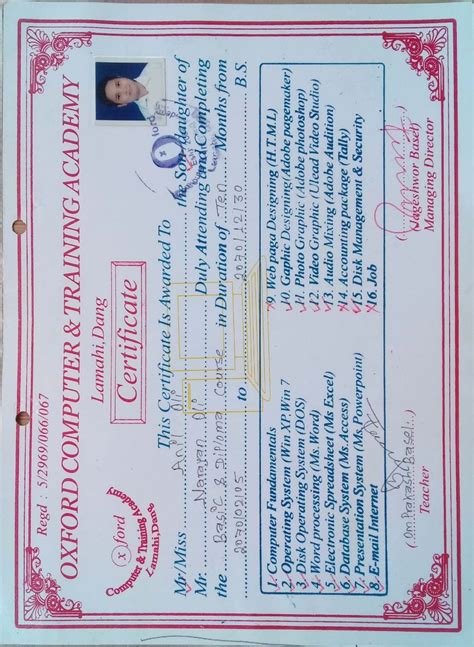 Regd : 5/2969/066/067
OXFORD COMPUTER & TRAINING ACADEMY
Lamahi, Dang
Certificate
Oxford
Computer & Training Academy
Lamahi, Dang
This Certificate Is Awarded To
Mr/Miss
the Son/daughter of
Mr. Narayan
Duly Attending and Completing
the Basic & Diploma Course in Duration of Ten Months from
2070/02/05 to 2070/12/30 B.S.
1. Computer Fundamentals
2. Operating System (Win XP, Win 7
3. Disk Operating System (DOS)
4. Word processing (Ms. Word)
5. Electronic Spreadsheet (Ms Excel)
6. Database System (Ms. Access)
7. Presentation System (Ms. Powerpoint)
8. E-mail Internet
9. Web paga Designing (H.T.M.L)
10. Gaphic Designing (Adobe pagemaker)
11. Photo Graphic (Adobe photoshop)
12. Video Graphic (Ulead Video Studio)
13. Audio Mixing (Adobe Audition)
14. Accounting package (Tally)
15. Disk Management & Security
16. Job
(Om Prakash Basel)
Teacher
(Nageshwor Basel)
Managing Director